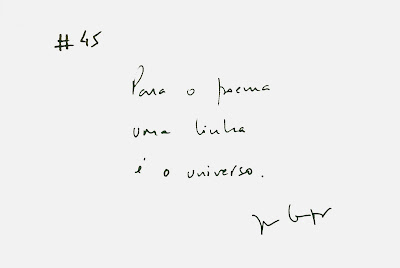 # 45
Para o poema
uma linha
é o universo.